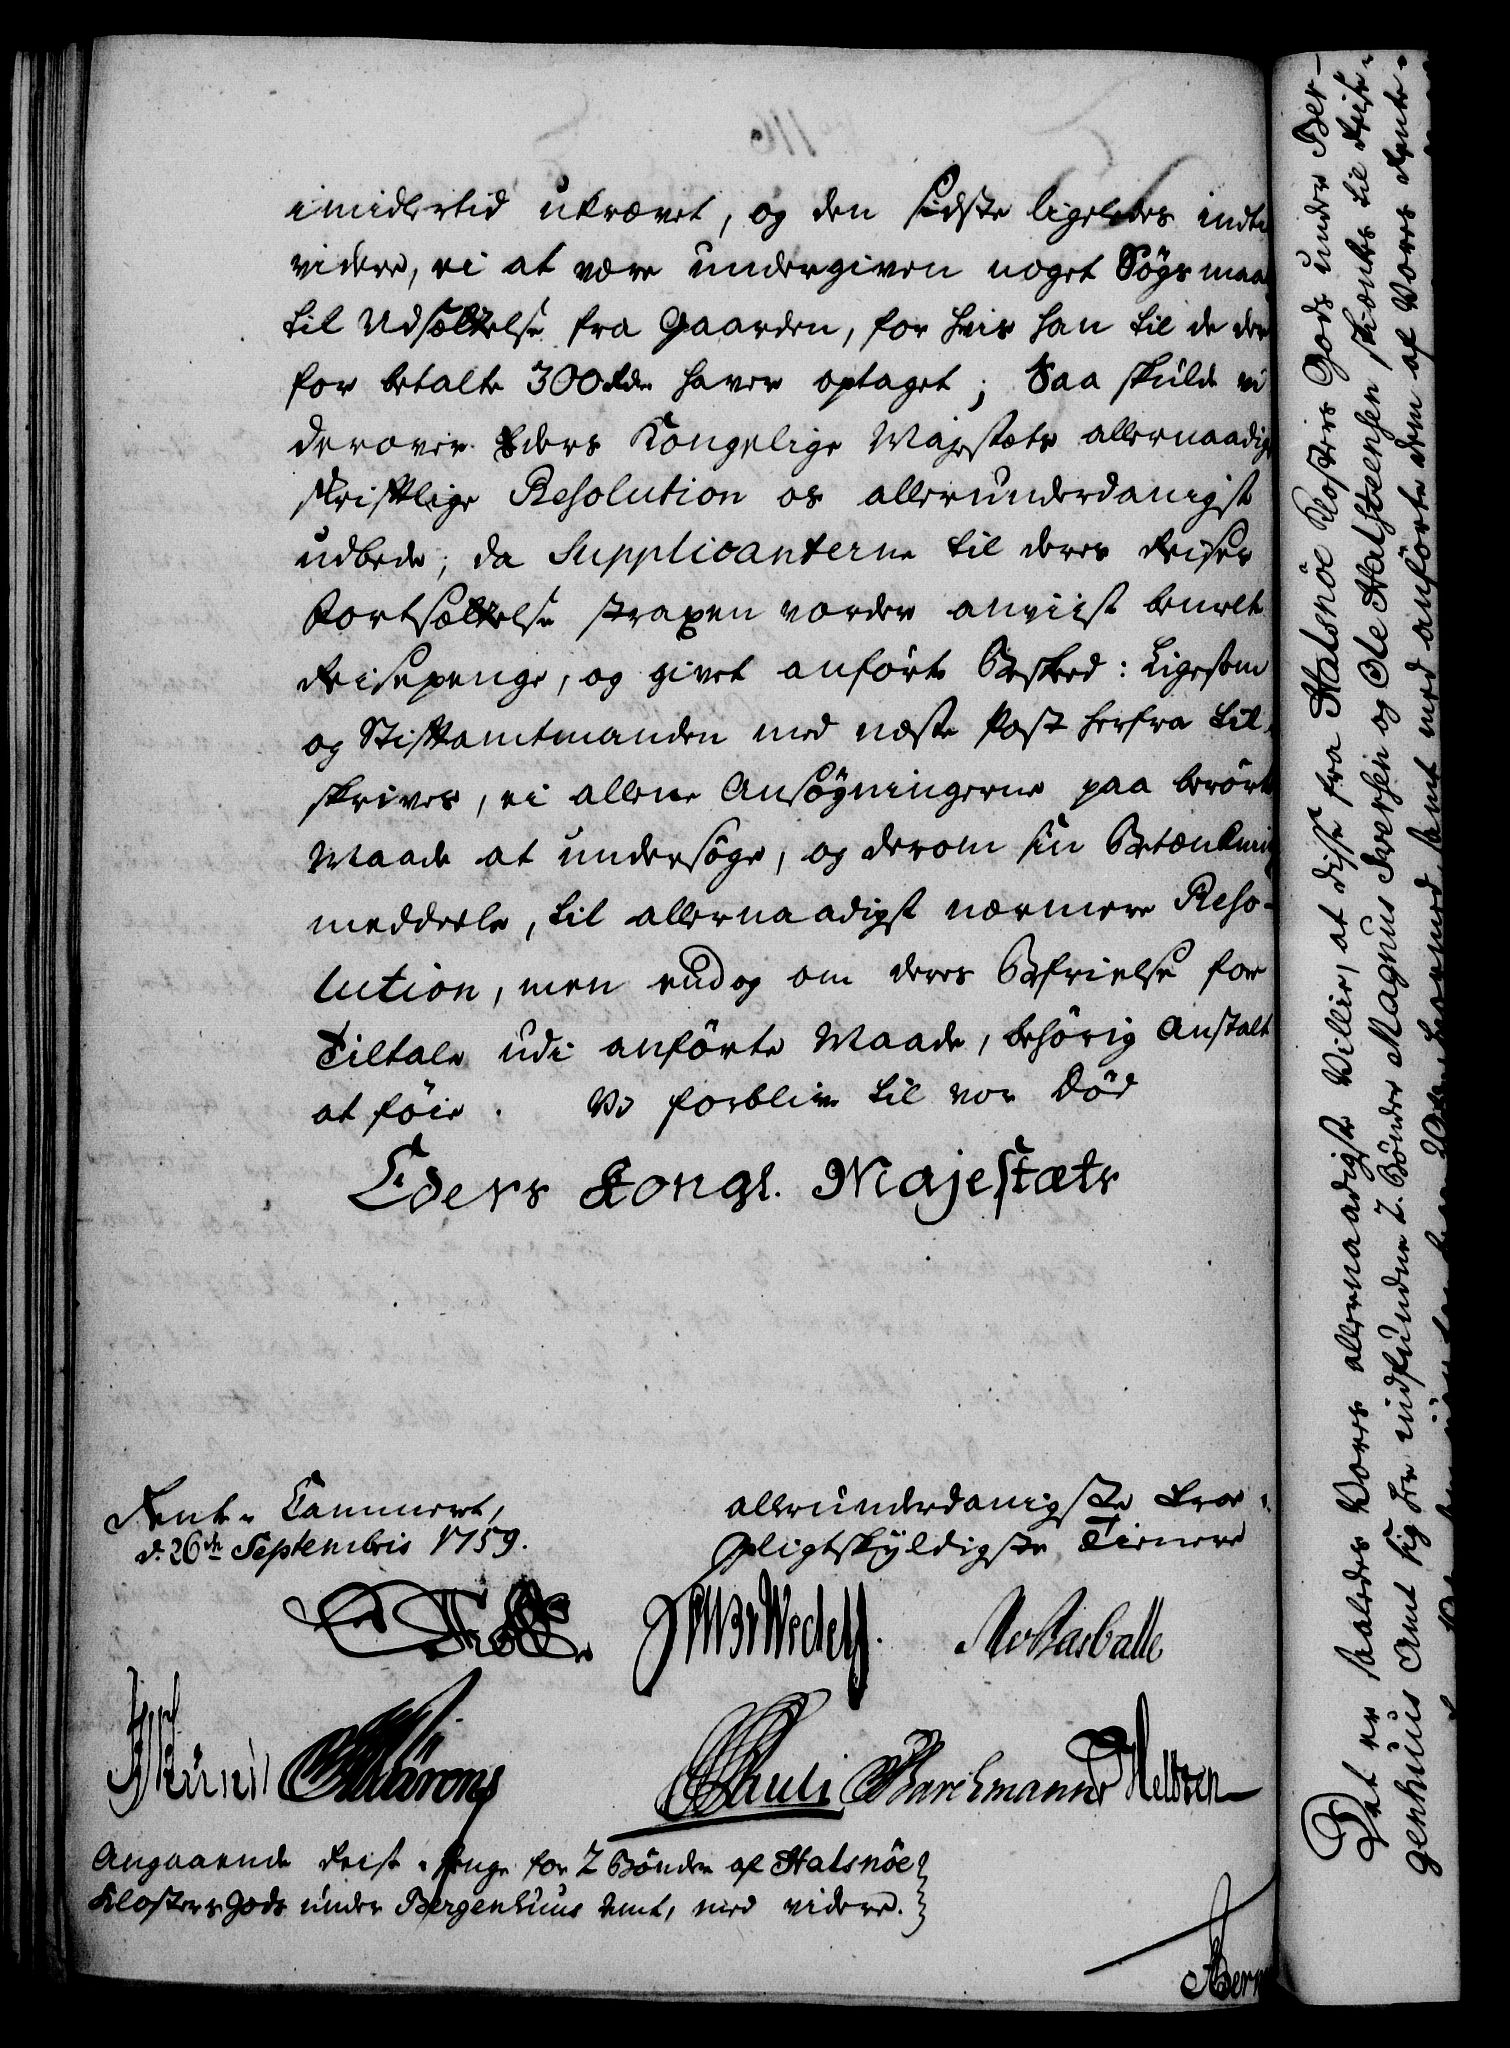 imidlertid ukrævet, og den sidste ligeledes indti
videre, ei at være undergiven noget Søgsmaa
til Udsættelse fra Gaarden, for hvis han til de der
for betalte 300 Rdr haver optaget; Saa skulde vi
derover Eders Kongelige Majestæts allernaadigs
skriftlige Resolution os allerunderdanigst
udbede; da Supplicanterne til deres Reises
Fortsættelse strapen vorder anviist benelte
Reisepenge, og givet anførte Besked: Ligesom
og Stiftamtmanden med næste Post herfra til-
skrives, ei allene Ansøgningerne paa berørte
Maade at undersøge, og derom sin Betænkni
meddeele, til allernaadigst nærmere Reso-
lution, men endog om deres Befrielse for
Tiltale udi anførte Maade, behörig Anstalt
at føie. Vi forblive til vor Død
Eders Kongl. Majestæts
Rente-Cammeret,
d. 26de Septembris 1759.
allerunderdanigste troe-
pligtskyldigste Tienere
Wedell.
Barballe
Pauli Barchmann Heltzen
Angaaende Reise-Penge for 2 Bönder af Halsnöe
Klosters Gods under Bergenhuus Amt, med videre.
Det er saaledes Vores allernaadigste Villie, at disse fra Halsnöe Klosters Gods under Ber-
genhuus Amt sig her indfundne 2. Bönder Magnus Iversen og Ole Halsteensen skienkes til Reise-
med anførte dem af Vores Rente-